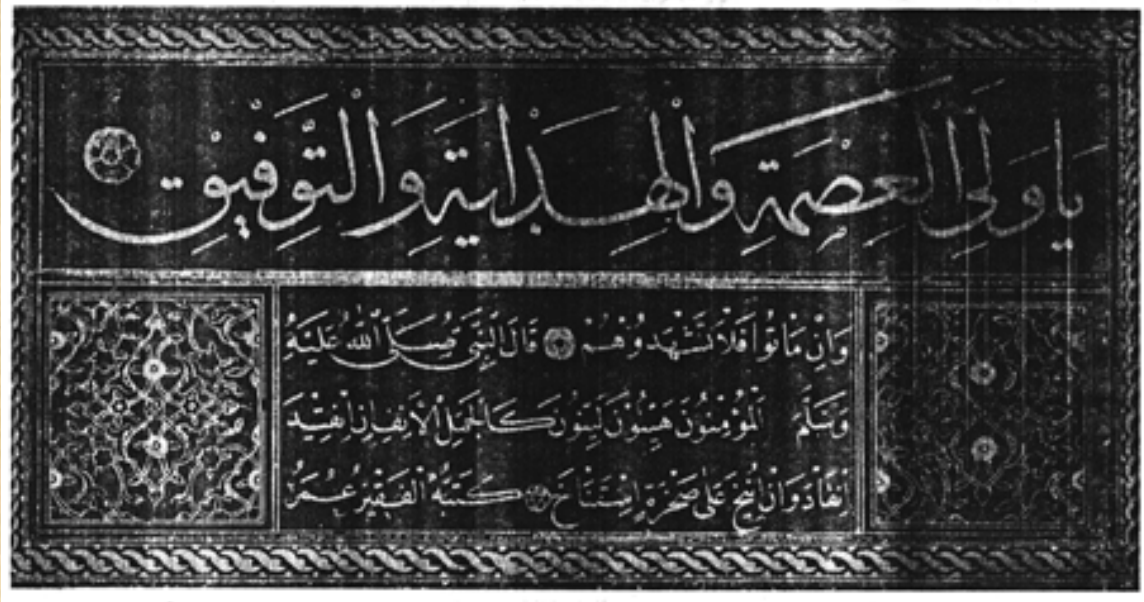 يَا وَلِيَّ الْعِصْمَةِ وَالْهِدَايَةِ وَالتَّوْفِيقِ
وَاِنْ مَاتُوا فَلَا تَشْهَدُوهُمْ قَالَ النَّبِيُّ صَلَّى اللّٰهُ عَلَيْهِ
وَسَلَّمَ الْمُؤْمِنُونَ هَيِّنُونَ لَيِّنُونَ كَالْجَمَلِ الْاَنِفِ اِنْ قُيِّدَ
انْقَادَ وَاِنْ اُنِيخَ عَلٰى صَخْرَةٍ اِسْتَنَاخَ كَتَبَهُ الْفَقِيرُ عُمَرُ